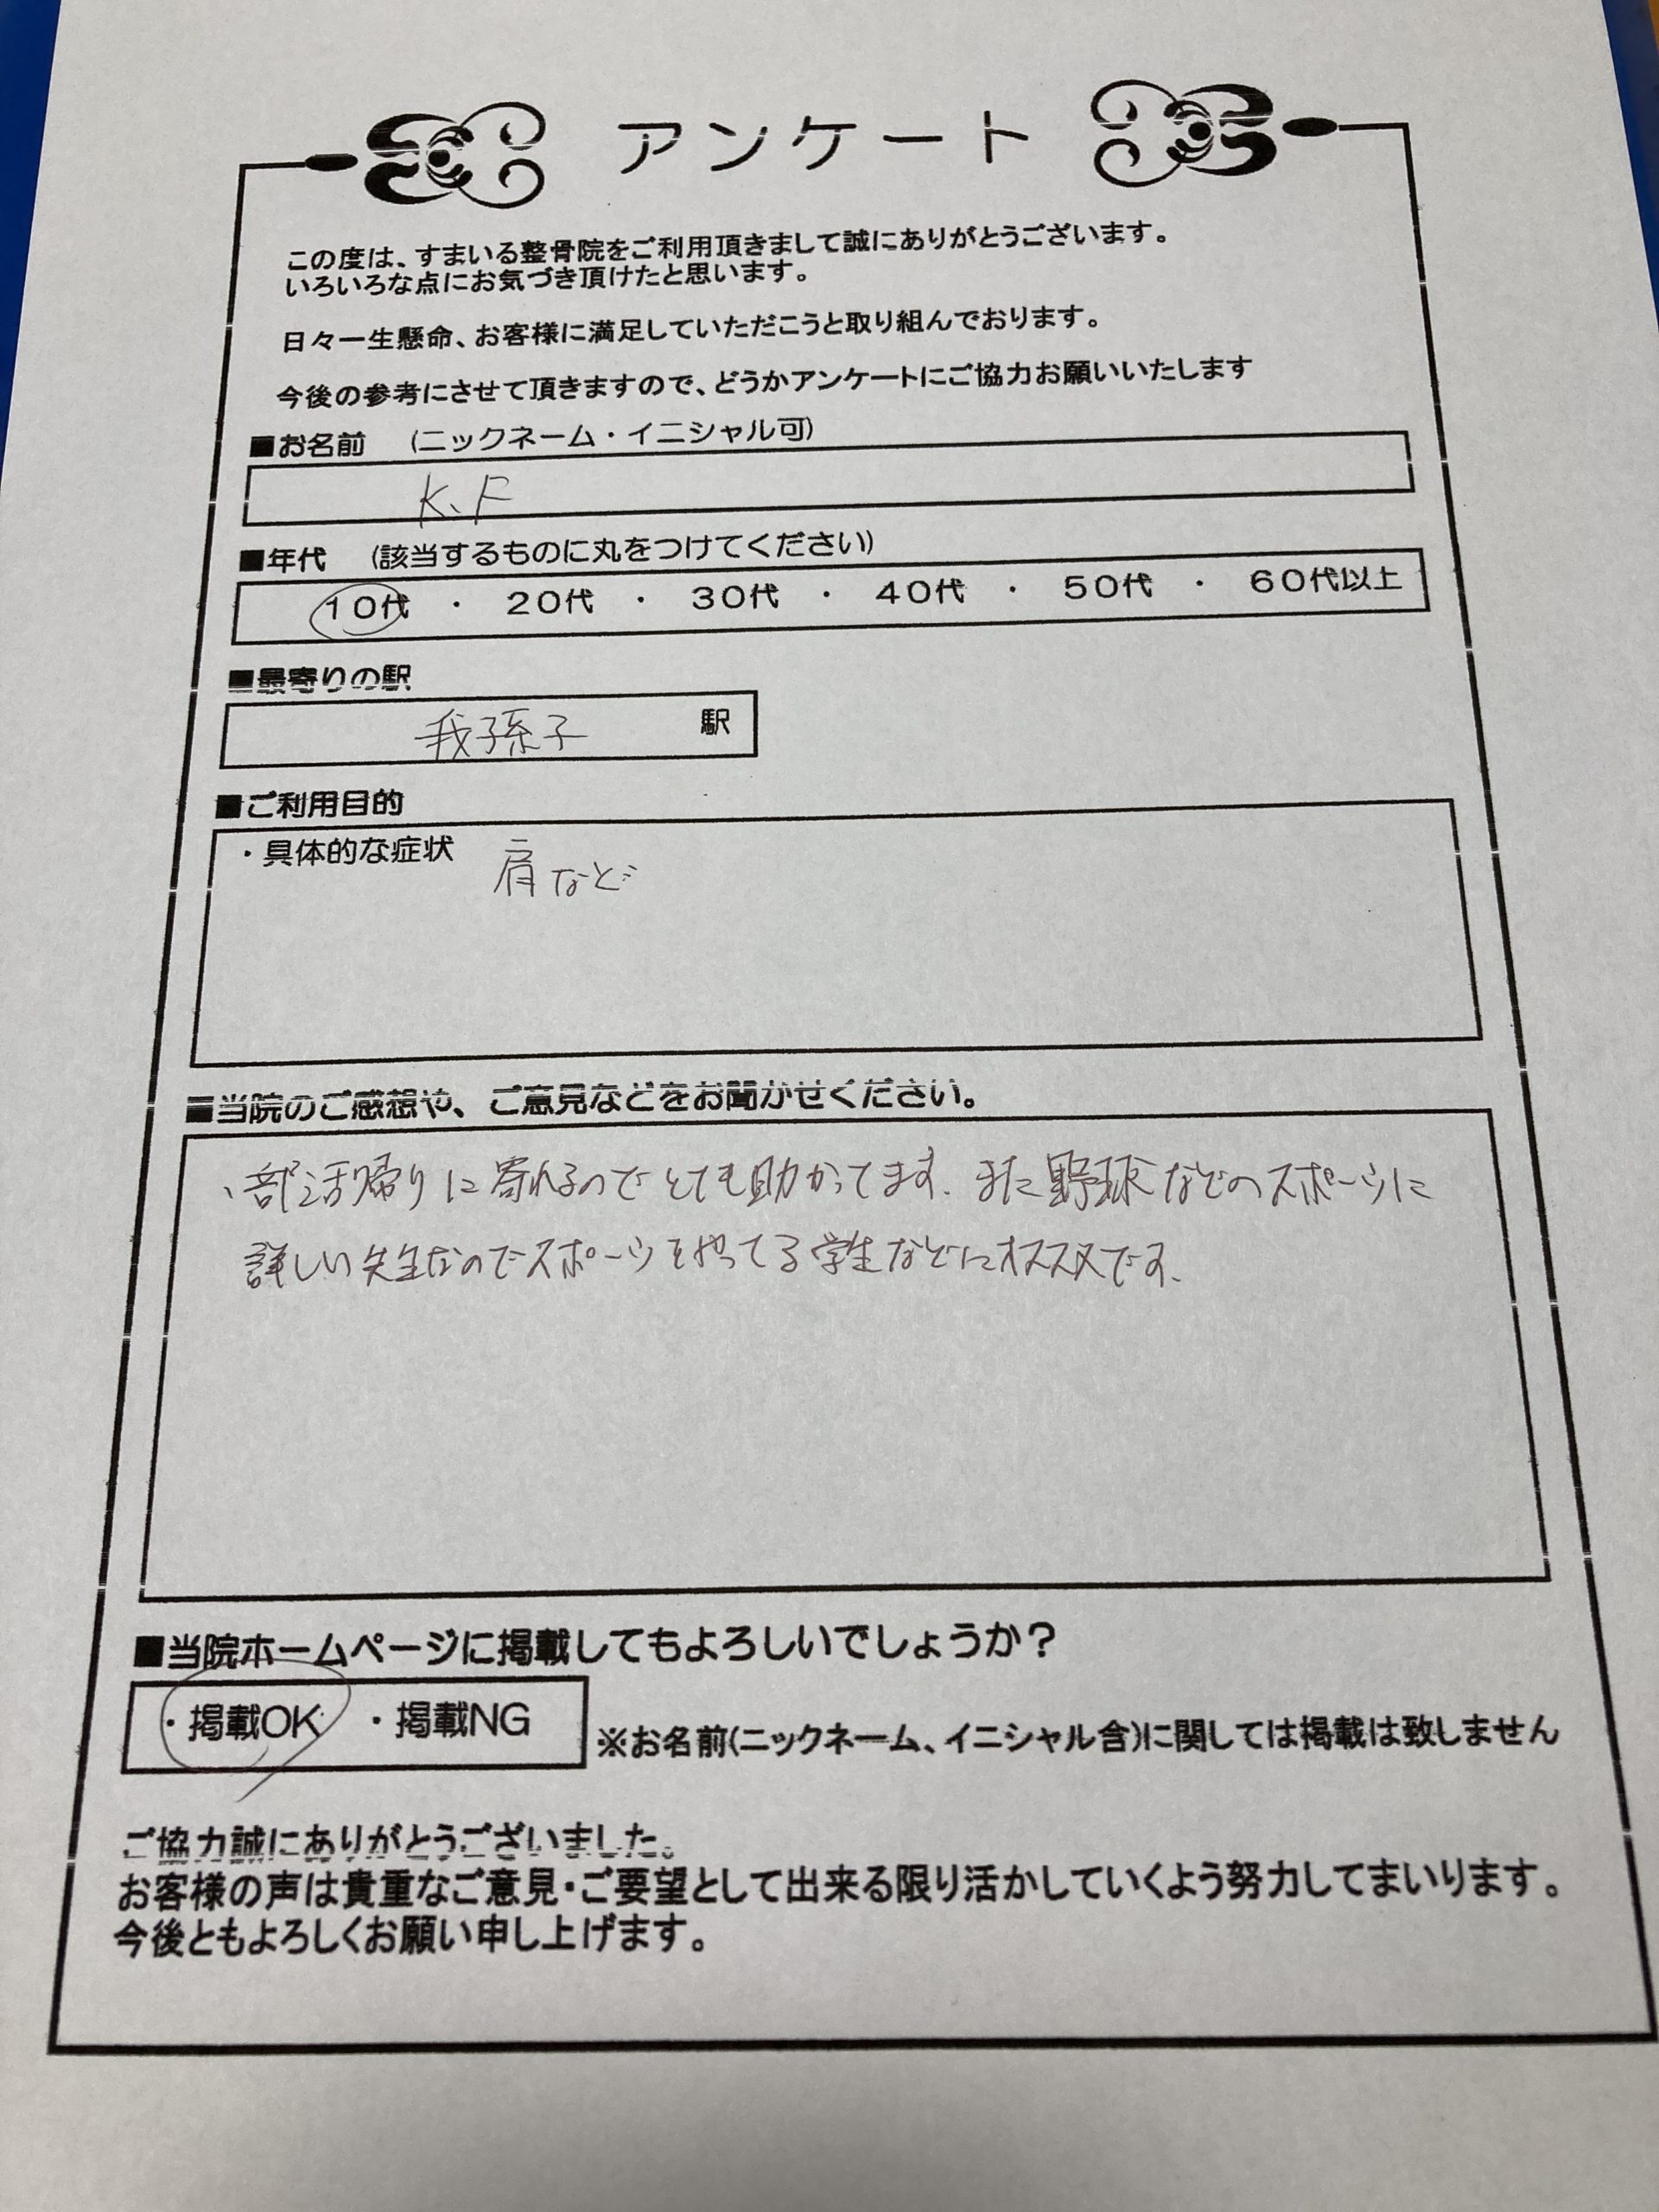 アンケート
この度は、すまいる整骨院をご利用頂きまして誠にありがとうございます。
いろいろな点にお気づき頂けたと思います。
日々一生懸命、お客様に満足していただこうと取り組んでおります。
今後の参考にさせて頂きますので、どうかアンケートにご協力お願いいたします
■お名前 (ニックネーム・イニシャル可)
K.F
■年代 (該当するものに丸をつけてください)
10代 ・ 20代 ・ 30代 ・ 40代 ・ 50代 ・ 60代以上
■最寄りの駅
我孫子 駅
■ご利用目的
・具体的な症状 肩など
■当院のご感想や、ご意見などをお聞かせください。
、部活帰りに寄れるのでとても助かってます。また野球などのスポーツに
詳しい先生なのでスポーツをやってる学生などにオススメです。
■当院ホームページに掲載してもよろしいでしょうか？
・掲載OK ・掲載NG ※お名前(ニックネーム、イニシャル含)に関しては掲載は致しません
ご協力誠にありがとうございました。
お客様の声は貴重なご意見・ご要望として出来る限り活かしていくよう努力してまいります。
今後ともよろしくお願い申し上げます。